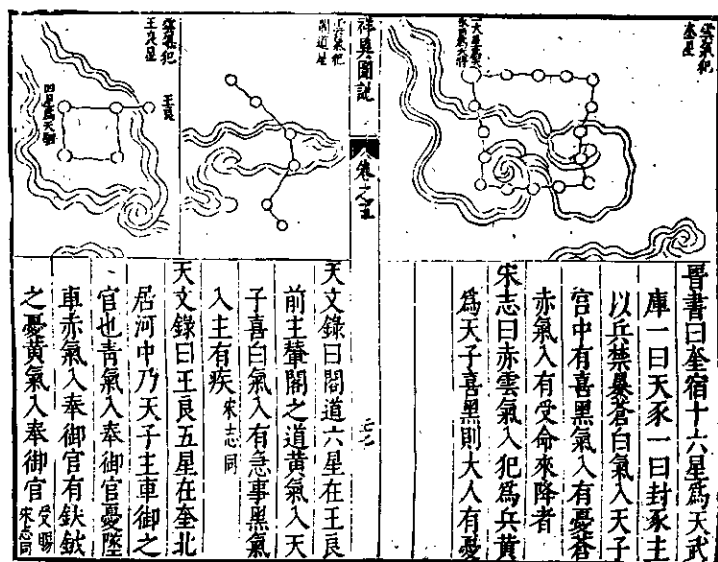 雲氣犯
奎星
晉書曰奎宿十六星爲天武
庫一曰天豕一曰封豕主
以兵禁暴蒼白氣入天子
宫中有喜黑氣入有憂蒼
赤氣入有受命來降者
宋志曰赤雲氣入犯爲兵黄
爲天子喜黑則大人有憂
祥異圖説
卷之五
雲氣犯
閣道星
天文錄曰閣道六星在王良
前主輦閣之道黄氣入天
子喜白氣入有急事黑氣
入主有疾宋志同
雲氣犯
王良星
王良
四星爲天駟
天文錄曰王良五星在奎北
居河中乃天子主車御之
官也靑氣入奉御官憂墜
車赤氣入奉御官有鈇鉞
之憂黄氣入奉御官受賜
宋志同